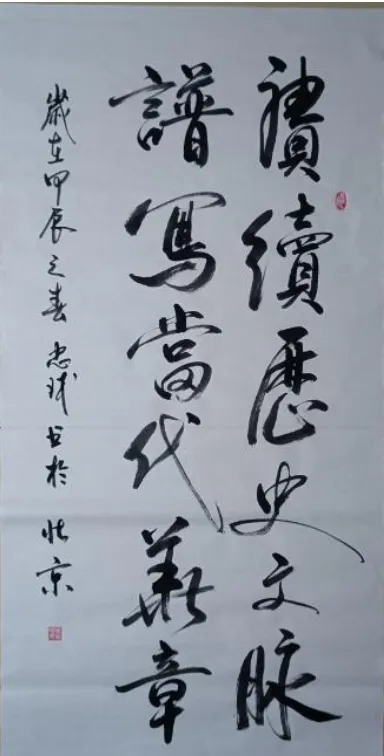 賡續歷史文脉
譜寫當代華章
歲在甲辰之春忠球书於北京